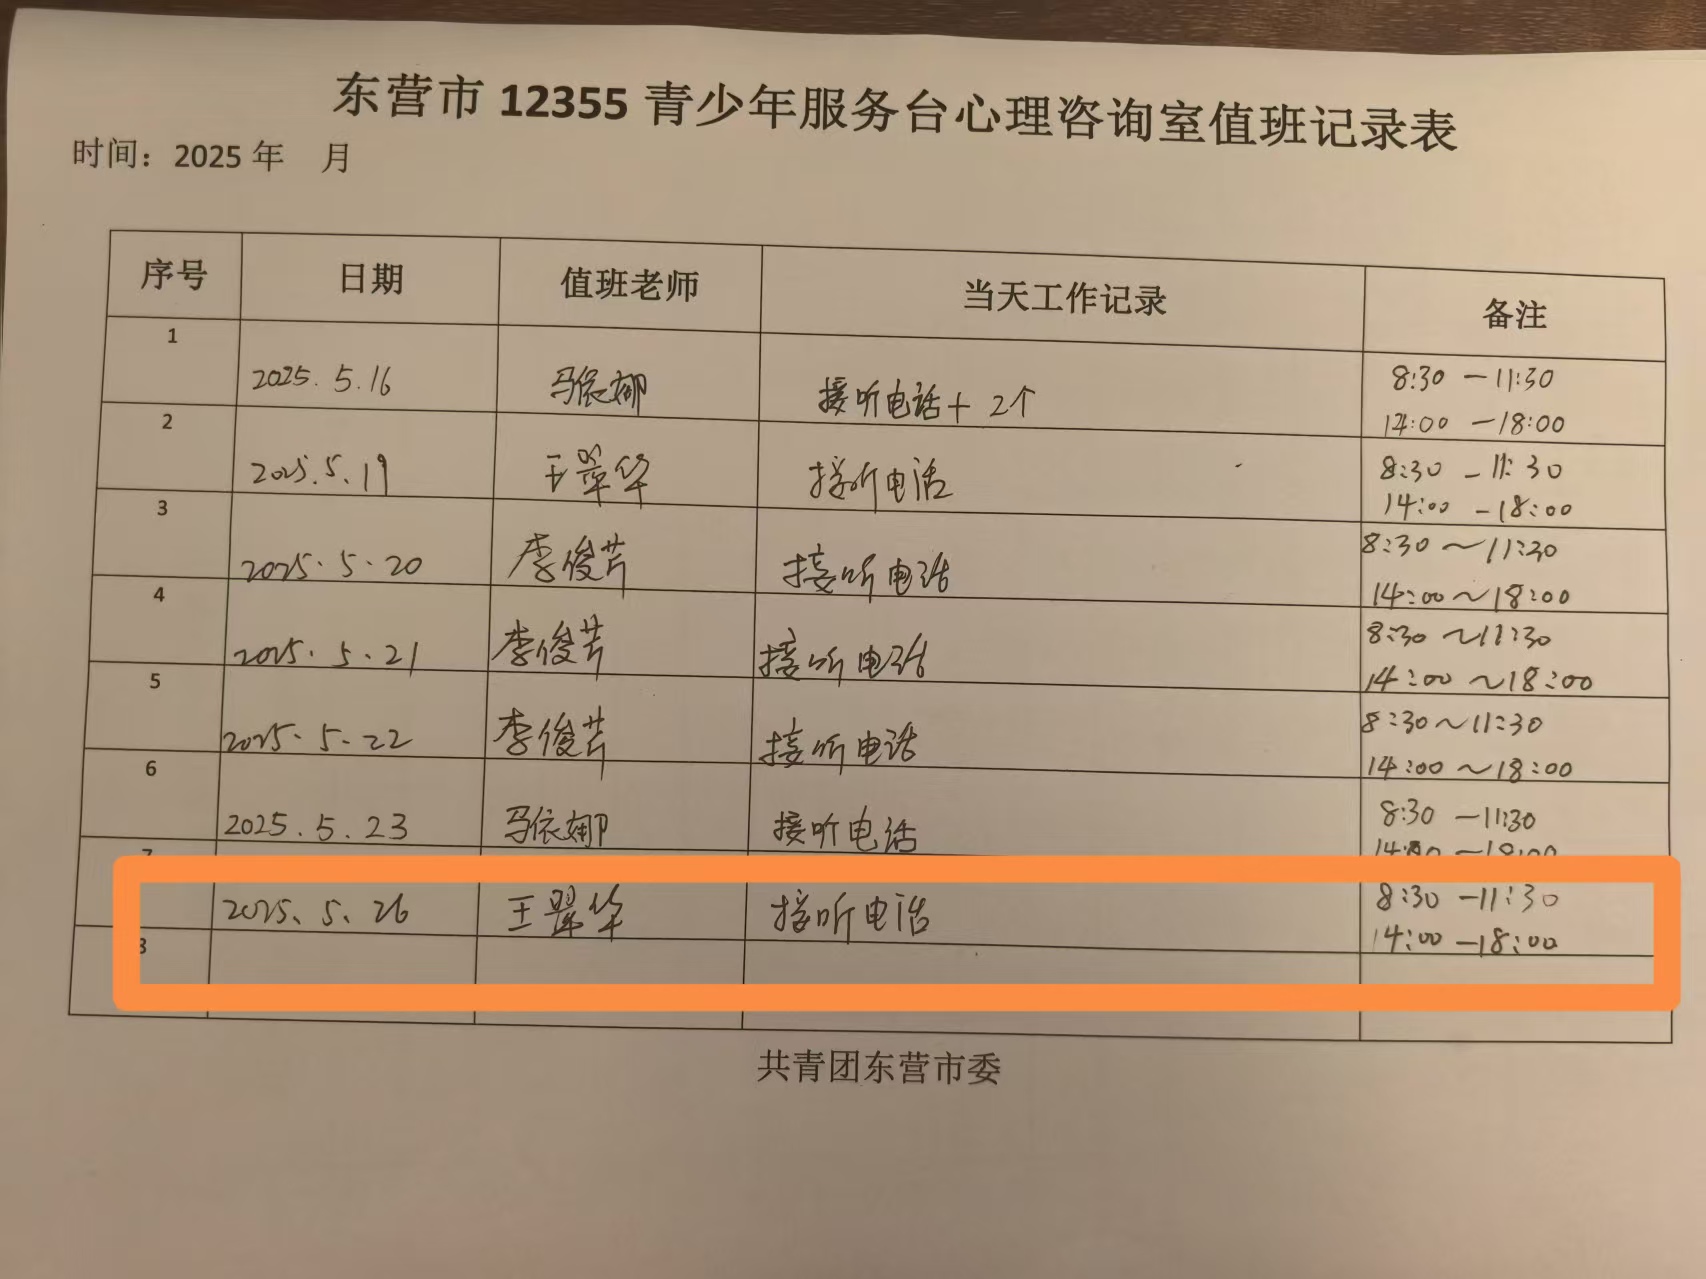 东营市 12355 青少年服务台心理咨询室值班记录表
时间：2025 年 月
序号 日期 值班老师 当天工作记录 备注
1 2025.5.16 马依娜 接听电话+2个 8:30 — 11:30
14:00 — 18:00
2 2025.5.19 王翠华 接听电话 8:30 — 11:30
14:00 — 18:00
3 2025.5.20 李俊芹 接听电话 8:30 ～ 11:30
14:00 ～ 18:00
4 2025.5.21 李俊芹 接听电话 8:30 ～ 11:30
14:00 ～ 18:00
5 2025.5.22 李俊芹 接听电话 8:30 ～ 11:30
14:00 ～ 18:00
6 2025.5.23 马依娜 接听电话 8:30 — 11:30
14:00 — 18:00
7 2025.5.26 王翠华 接听电话 8:30 — 11:30
14:00 — 18:00
8
共青团东营市委